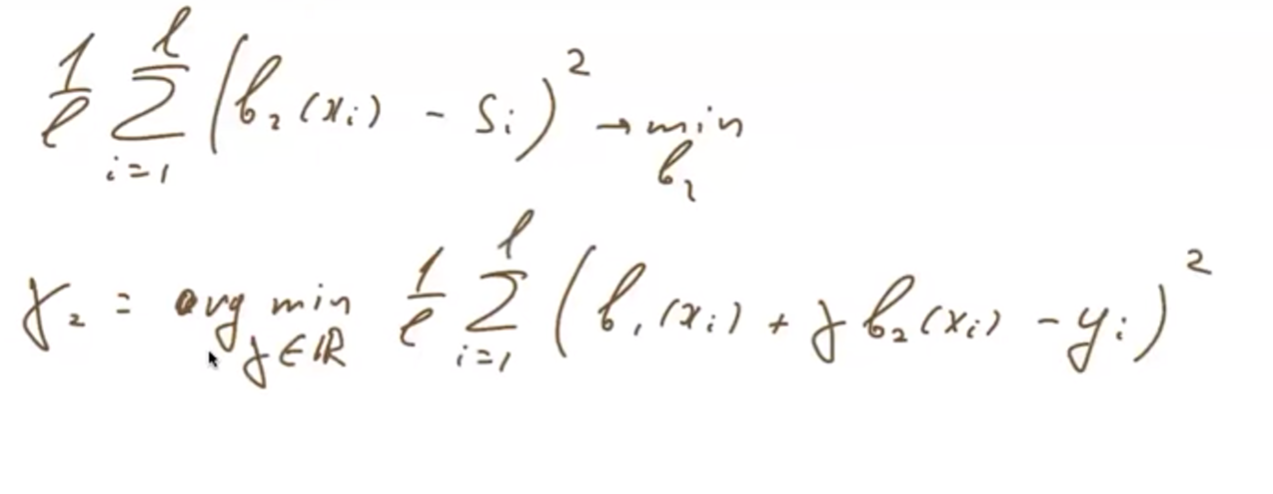 1/ℓ ∑_{i=1}^{ℓ} (b₂(xᵢ) - sᵢ)² → min_{b₂}
γ₂ = arg min_{γ∈ℝ} 1/ℓ ∑_{i=1}^{ℓ} (b₁(xᵢ) + γ b₂(xᵢ) - yᵢ)²